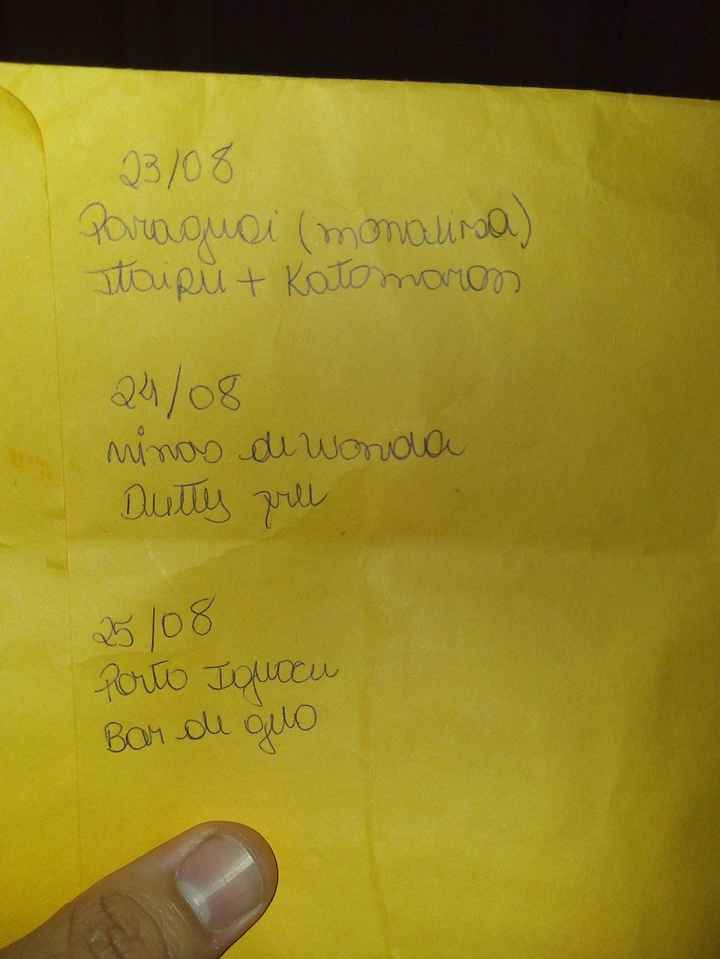 23/08
Paraguai (monalisa)
Itaipu + Katamaram
24/08
minas de wanda
Dutty free
25/08
Porto Iguacu
Bar de gelo